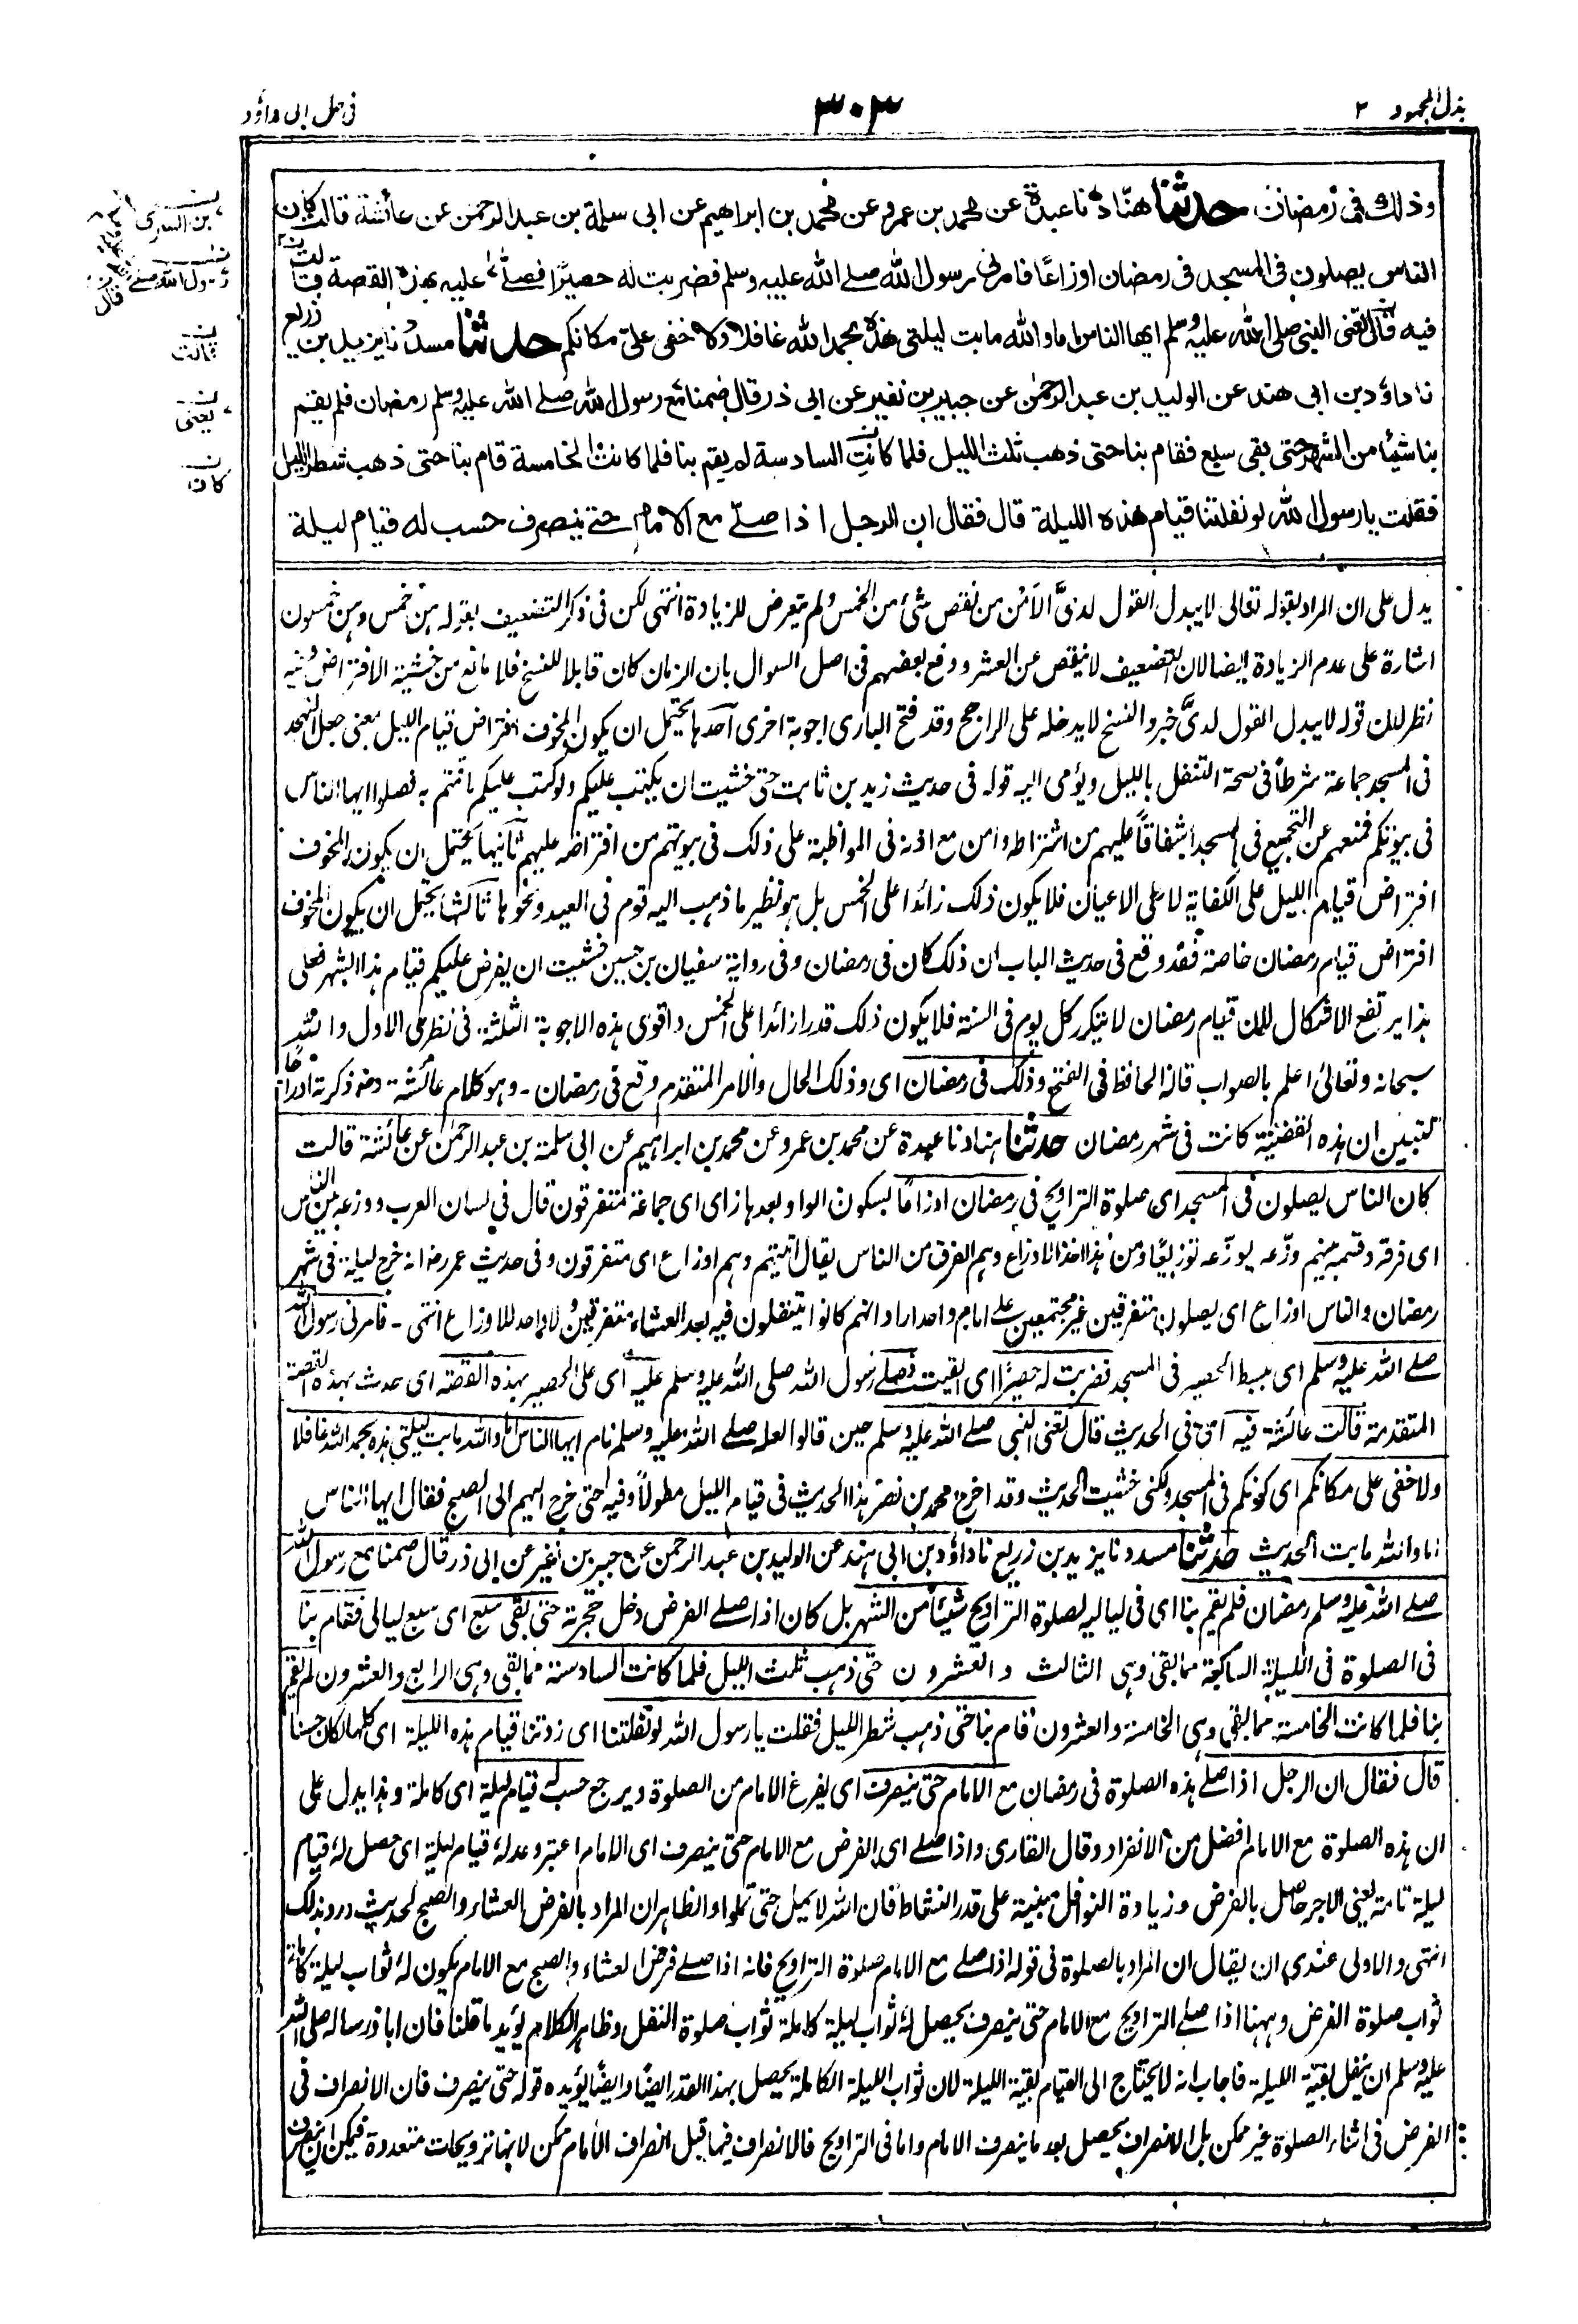 بذل المجهود ٢
٣٠٣
فى حل ابى داؤد
وذلك فى رمضان حدثنا هنّاد نا عبدة عن محمد بن عمرو عن محمد بن ابراهيم عن ابى سلمة بن عبد الرحمن عن عائشة قالت كان
الناس يصلون فى المسجد فى رمضان اوزاعًا فامرنى رسول الله صلے الله عليه وسلم فضربت له حصيرًا فصلّے عليه بهذه القصة قالت
فيه قال تعنى النبى صلى الله عليه وسلم ايها الناس اما والله ما بت ليلتى هذه بحمد الله غافلا ولا خفى علىّ مكانكم حدثنا مسدد نا يزيد بن زريع
نا داؤد بن ابى هند عن الوليد بن عبد الرحمٰن عن جبير بن نفير عن ابى ذر قال صمنا مع رسول الله صلے الله عليه وسلم رمضان فلم يقم
بنا شيئا من الشهر حتى بقى سبع فقام بنا حتى ذهب ثلث الليل فلما كانت السادسة لم يقم بنا فلما كانت الخامسة قام بنا حتى ذهب شطر الليل
فقلت يا رسول الله لو نفلتنا قيام هذه الليلة قال فقال ان الرجل اذا صلے مع الامام حتے ينصرف حسب له قيام ليلة
بن السرى
رسول الله صلے
قال
قالت
يعنى
كان
يدل على ان المراد بقوله تعالى لا يبدل القول لدىّ الامن من نقص شئ من الخمس ولم يتعرض للزيادة انتهى لكن فى ذكر التضعيف بقوله هن خمس وهن خمسون
اشارة على عدم الزيادة ايضا لان التضعيف لا ينقص عن العشر ودفع بعضهم فى اصل السوال بان الزمان كان قابلا للنسخ فلا مانع من خشية الافتراض وفيه
نظر لان قوله لا يبدل القول لدىّ خبر والنسخ لا يدخله على الراجح وقد فتح البارى اجوبة اخرى احدها يحتمل ان يكون المخوف افتراض قيام الليل بمعنى جعل التهجد
فى المسجد جماعة شرطا فى صحة التنفل بالليل ويؤمى اليه قوله فى حديث زيد بن ثابت حتى خشيت ان يكتب عليكم ولو كتب عليكم ما قمتم به فصلوا ايها الناس
فى بيوتكم فمنعهم عن التجميع فى المسجد اشفاقا عليهم من اشتراطه وامن مع اذنه فى المواظبة على ذلك فى بيوتهم من افتراضه عليهم ثانيها يحتمل ان يكون المخوف
افتراض قيام الليل على الكفاية لا على الاعيان فلا يكون ذلك زائدا على الخمس بل هو نظير ما ذهب اليه قوم فى العيد ونحوها ثالثها يحتمل ان يكون المخوف
افتراض قيام رمضان خاصة فقد وقع فى حديث الباب ان ذلك كان فى رمضان وفى رواية سفيان بن حسين خشيت ان يفرض عليكم قيام هذا الشهر فعلى
هذا يرتفع الاشكال لان قيام رمضان لا يتكرر كل يوم فى السنة فلا يكون ذلك قدرا زائدا على الخمس واقوى هذه الاجوبة الثلثة فى نظرى الاول والله
سبحانه وتعالىٰ اعلم بالصواب قاله الحافظ فى الفتح وذلك فى رمضان اى وذلك الحال والامر المتقدم وقع فى رمضان - وهو كلام عائشة رضـ ذكرته ادراجًا
لتبين ان هذه القضية كانت فى شهر رمضان حدثنا هناد نا عبدة عن محمد بن عمرو عن محمد بن ابراهيم عن ابى سلمة بن عبد الرحمٰن عن عائشة قالت
كان الناس يصلون فى المسجد اى صلوة التراويح فى رمضان اوزاعا بسكون الواو بعدها زاى اى جماعة متفرقون قال فى لسان العرب ووزعه بين الناس
اى فرقه وقسمه بينهم وزّعه يوزّعه توزيعًا ومن هذا اخذ الاوزاع وهم الفرق من الناس يقال اتيتهم وهم اوزاع اى متفرقون وفى حديث عمر رضـ انه خرج ليلة فى شهر
رمضان والناس اوزاع اى يصلون متفرقين غير مجتمعين على امام واحد اراد انهم كانوا يتنفلون فيه بعد العشاء متفرقين ولا واحد للاوزاع انتهى - فامرنى رسول الله
صلے الله عليه وسلم اى ببسط الحصير فى المسجد فضربت له حصيرًا اى القيت فصلے رسول الله صلى الله عليه وسلم عليه اى على الحصير بهذه القصة اى حدث بهذه القصة
المتقدمة قالت عائشة فيه اى فى الحديث قال تعنى النبى صلے الله عليه وسلم حين قالوا لعله صلے الله عليه وسلم نام ايها الناس اما والله ما بت ليلتى هذه بحمد الله غافلا
ولا خفى على مكانكم اى كونكم فى المسجد ولكنى خشيت الحديث وقد اخرج محمد بن نصر هذا الحديث فى قيام الليل مطولًا وفيه حتى خرج اليهم الى الصبح فقال ايها الناس
اما والله ما بت الحديث حدثنا مسدد نا يزيد بن زريع نا داؤد بن ابى هند عن الوليد بن عبد الرحمن عن جبير بن نفير عن ابى ذر قال صمنا مع رسول الله
صلے الله عليه وسلم رمضان فلم يقم بنا اى فى لياليه لصلوة التراويح شيئا من الشهر بل كان اذا صلے الفرض دخل حجرته حتى بقى سبع اى سبع ليالى فقام بنا
فى الصلوة فى الليلة السابعة مما بقى وهى الثالث والعشرون حتى ذهب ثلث الليل فلما كانت السادسة مما بقى وهى الرابع والعشرون لم يقم
بنا فلما كانت الخامسة مما بقى وهى الخامسة والعشرون قام بنا حتى ذهب شطر الليل فقلت يا رسول الله لو نفلتنا اى زدتنا قيام هذه الليلة اى كلها لكان حسنا
قال فقال ان الرجل اذا صلے هذه الصلوة فى رمضان مع الامام حتى ينصرف اى يفرغ الامام من الصلوة ويرجع حسب له قيام ليلة اى كاملة وهذا يدل على
ان هذه الصلوة مع الامام افضل من الانفراد وقال القارى واذا صلے اى الفرض مع الامام حتى ينصرف اى الامام اعتبر وعد له قيام ليلة اى حصل له قيام
ليلة تامة يعنى الاجر حاصل بالفرض وزيادة النوافل مبنية على قدر النشاط فان الله لا يمل حتى تملوا والظاهر ان المراد بالفرض العشاء والصبح لحديث ورد بذلك
انتهى والاولى عندى ان يقال ان المراد بالصلوة فى قوله اذا صلے مع الامام صلوة التراويح فانه اذا صلے فرض العشاء والصبح مع الامام يكون له ثواب ليلة كاملة
ثواب صلوة الفرض وههنا اذا صلے التراويح مع الامام حتى ينصرف يحصل له ثواب ليلة كاملة ثواب صلوة النفل وظاهر الكلام يؤيد ما قلنا فان ابا ذر ساله صلى الله
عليه وسلم ان ينفل بقية الليلة فاجاب انه لا يحتاج الى القيام بقية الليلة لان ثواب الليلة الكاملة يحصل بهذا القدر ايضًا وايضًا يؤيده قوله حتى ينصرف فان الانصراف فى
الفرض فى اثناء الصلوة غير ممكن بل الانصراف يحصل بعد ما ينصرف الامام واما فى التراويح فالانصراف فيها قبل انصراف الامام ممكن لانها ترويحات متعددة فيمكن ان ينصرف